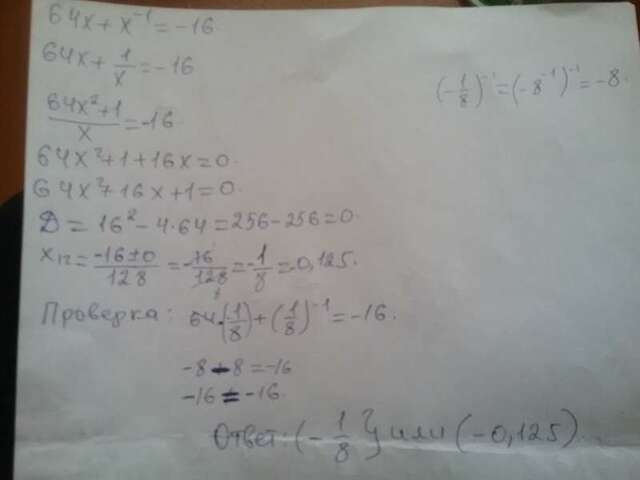 64x + x⁻¹ = -16
64x + 1/x = -16
(-1/8)⁻¹ = (-8⁻¹)⁻¹ = -8.
(64x² + 1)/x = -16.
64x² + 1 + 16x = 0.
64x² + 16x + 1 = 0.
D = 16² - 4·64 = 256 - 256 = 0.
x₁₂ = (-16 ± 0)/128 = -16/128 = -1/8 = -0,125.
Проверка: 64·(1/8) + (1/8)⁻¹ = -16.
-8 - 8 = -16
-16 = -16.
Ответ: (-1/8) или (-0,125).